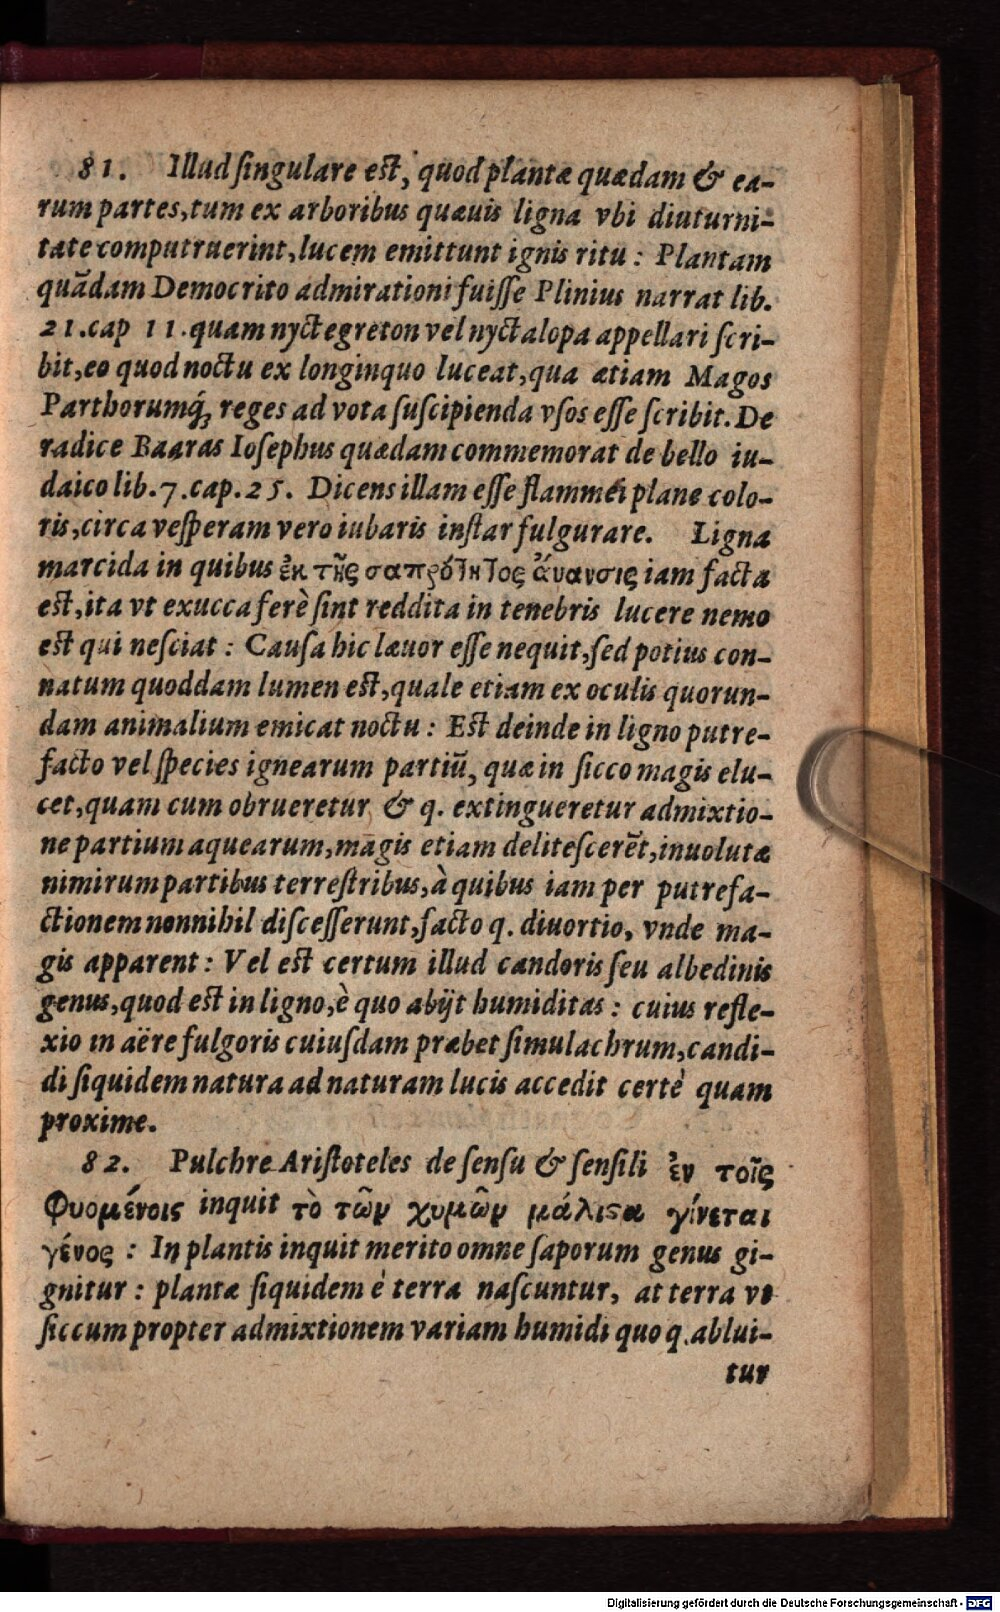 81. Illud ſingulare eſt, quod plantæ quædam & ea-
rum partes, tum ex arboribus quæuis ligna vbi diuturni-
tate computruerint, lucem emittunt ignis ritu: Plantam
quãdam Democrito admirationi fuiſſe Plinius narrat lib.
21. cap 11. quam nyctegreton vel nyctalopa appellari ſcri-
bit, eo quod noctu ex longinquo luceat, qua ætiam Magos
Parthorumq́ꝫ reges ad vota ſuſcipienda vſos eſſe ſcribit. De
radice Baaras Ioſephus quædam commemorat de bello iu-
daico lib. 7. cap. 25. Dicens illam eſſe flammei plane colo-
ris, circa veſperam vero iubaris inſtar fulgurare. Ligna
marcida in quibus ἐκ τῆς σαπρότητος ἄυανσις iam facta
eſt, ita vt exucca ferè ſint reddita in tenebris lucere nemo
eſt qui neſciat: Cauſa hic læuor eſſe nequit, ſed potius con-
natum quoddam lumen eſt, quale etiam ex oculis quorun-
dam animalium emicat noctu: Eſt deinde in ligno putre-
facto vel ſpecies ignearum partiũ, quæ in ſicco magis elu-
cet, quam cum obrueretur & q. extingueretur admixtio-
ne partium aquearum, magis etiam deliteſcerẽt, inuolutæ
nimirum partibus terreſtribus, à quibus iam per putrefa-
ctionem nonnihil diſceſſerunt, facto q. diuortio, vnde ma-
gis apparent: Vel eſt certum illud candoris ſeu albedinis
genus, quod eſt in ligno, è quo abijt humiditas: cuius refle-
xio in aëre fulgoris cuiuſdam præbet ſimulachrum, candi-
di ſiquidem natura ad naturam lucis accedit certè quam
proxime.
82. Pulchre Ariſtoteles de ſenſu & ſenſili ἐν τοῖς
φυομένοις inquit τὸ τῶν χυμῶν μάλιϛα γίνεται
γένος: In plantis inquit merito omne ſaporum genus gi-
gnitur: plantæ ſiquidem è terra naſcuntur, at terra vt
ſiccum propter admixtionem variam humidi quo q. ablui-
tur
Digitalisierung gefördert durch die Deutsche Forschungsgemeinschaft - DFG